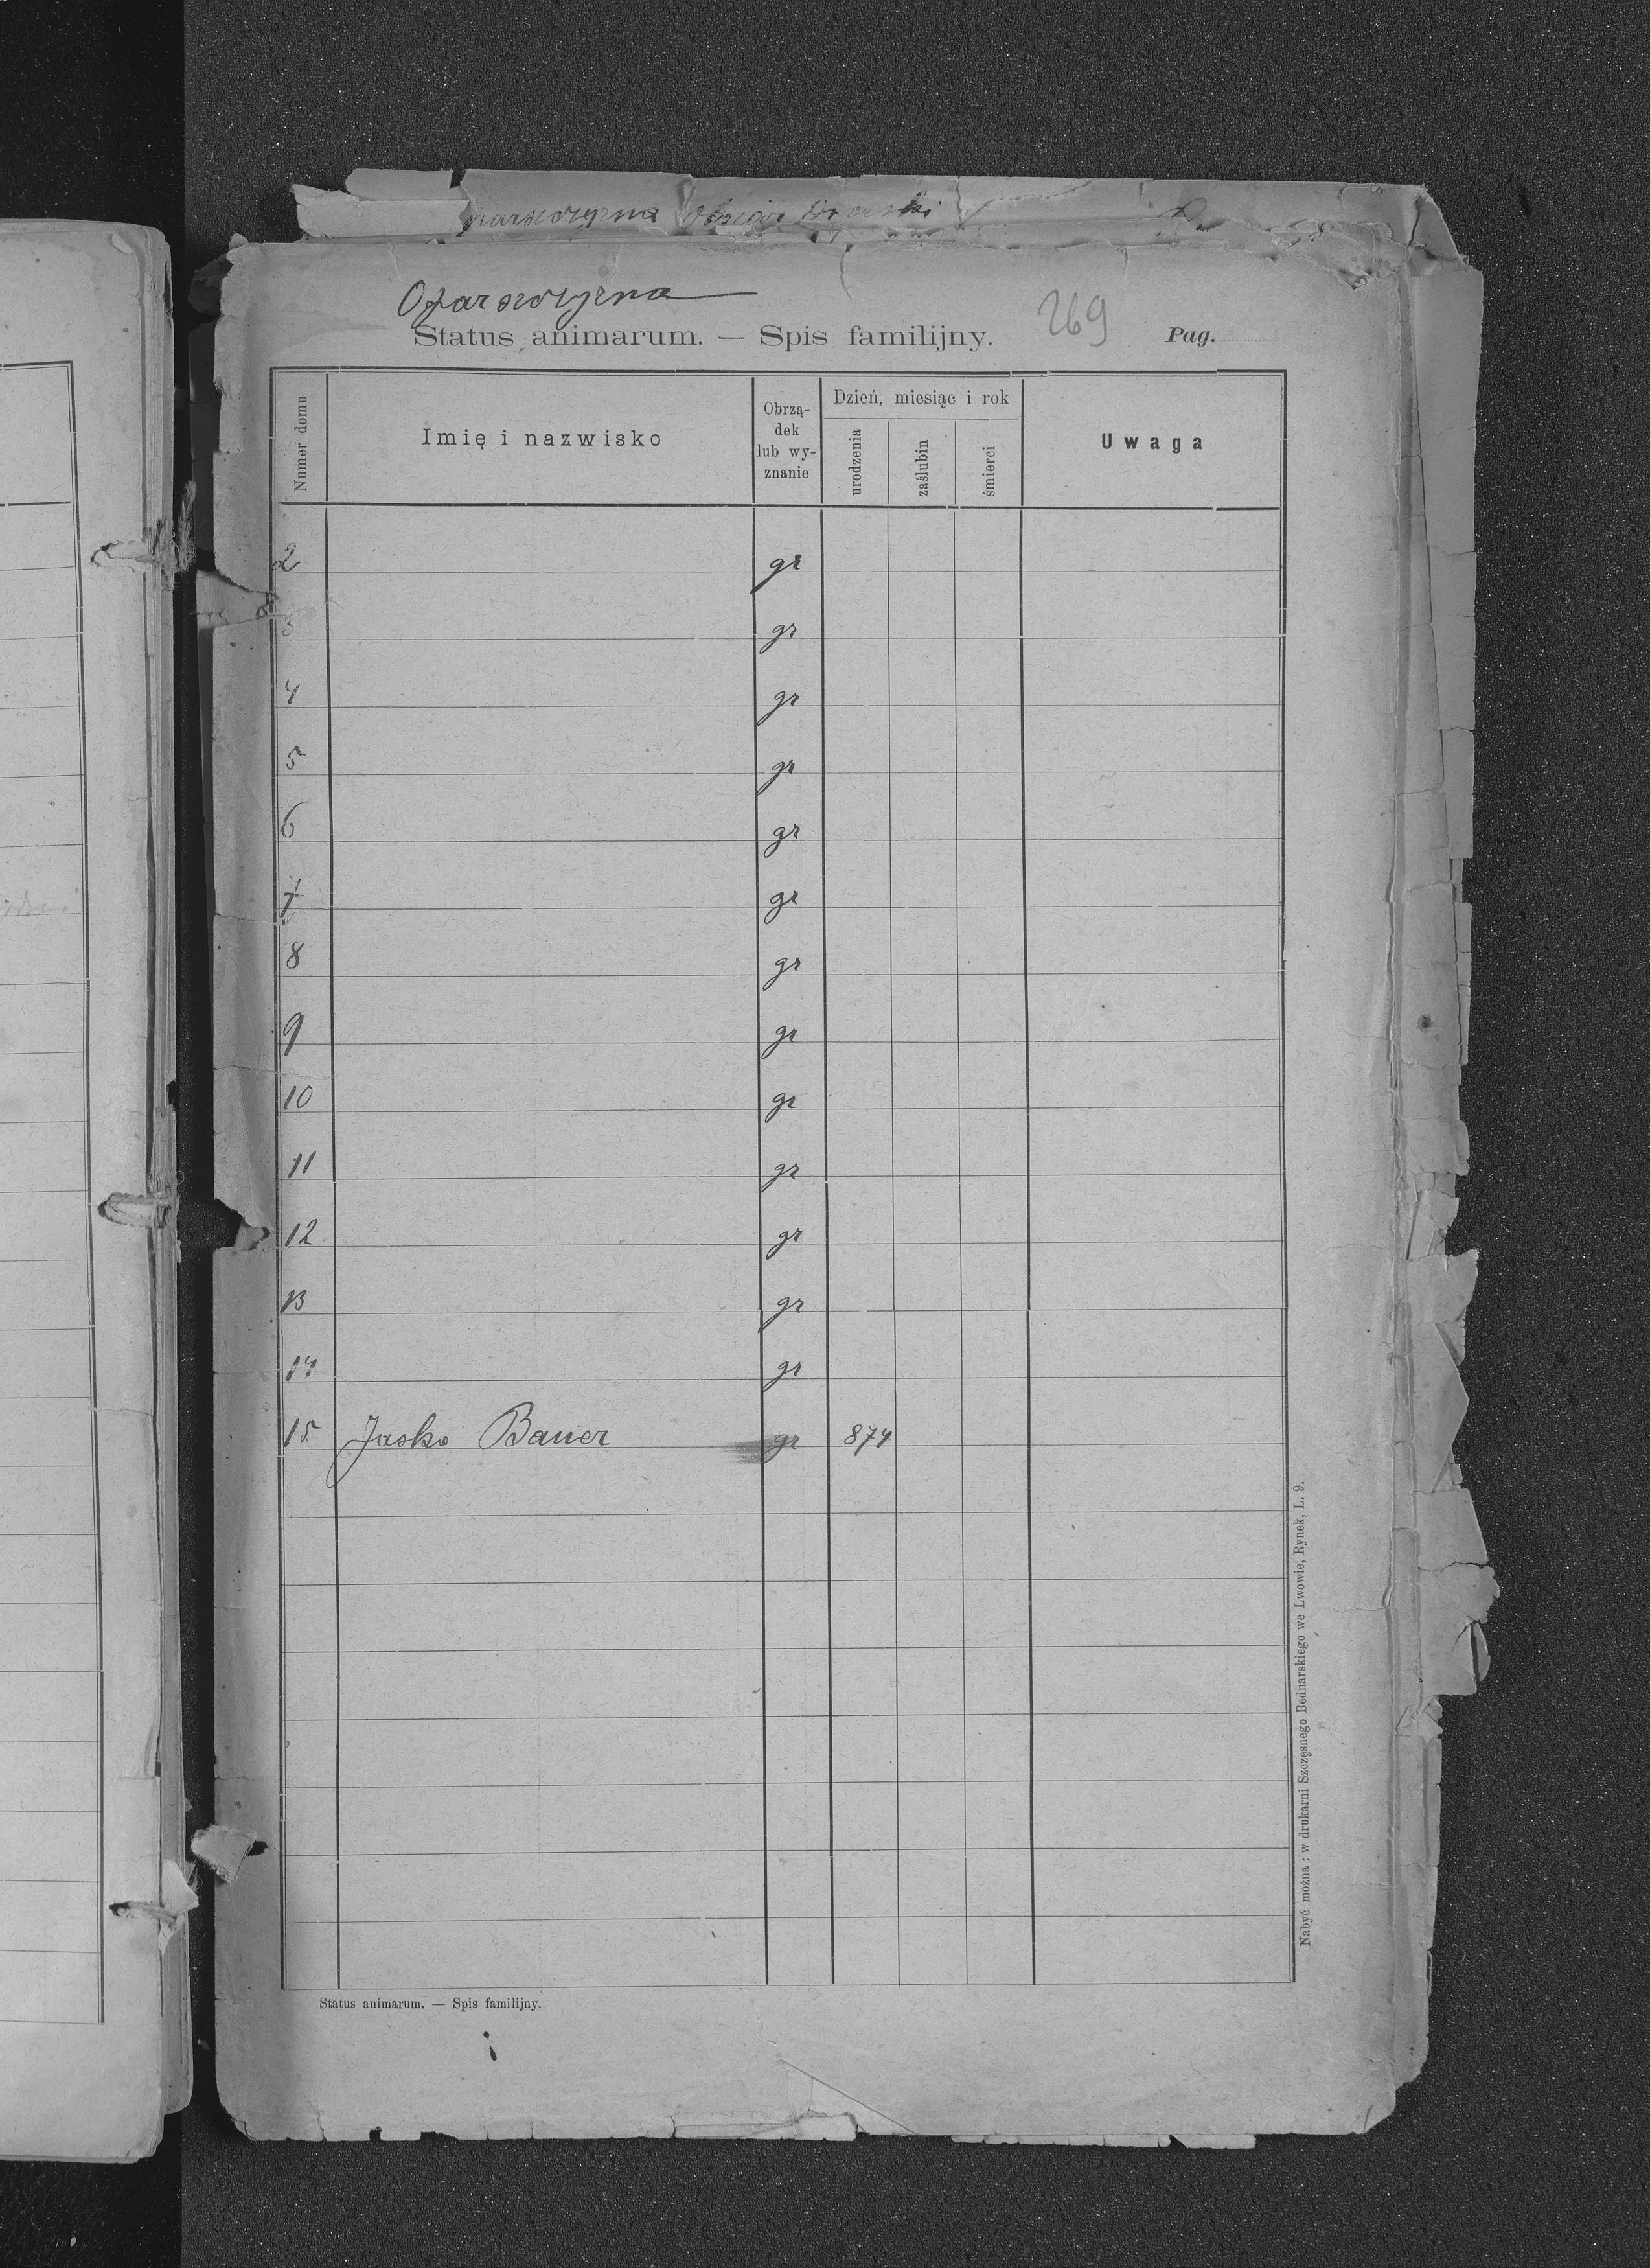 Obszar Dworski
Ożarszczyzna
269
Status animarum. — Spis familijny. Pag.
Numer domu
Imię i nazwisko
Obrzą-
dek
lub wy-
znanie
Dzień, miesiąc i rok
urodzenia
zaślubin
śmierci
Uwaga
2 gr
3 gr
4 gr
5 gr
6 gr
7 gr
8 gr
9 gr
10 gr
11 gr
12 gr
13 gr
14 gr
15 Jasko Bauer gr 874
Nabyć można : w drukarni Szczęsnego Bednarskiego we Lwowie, Rynek, L. 9.
Status animarum. — Spis familijny.